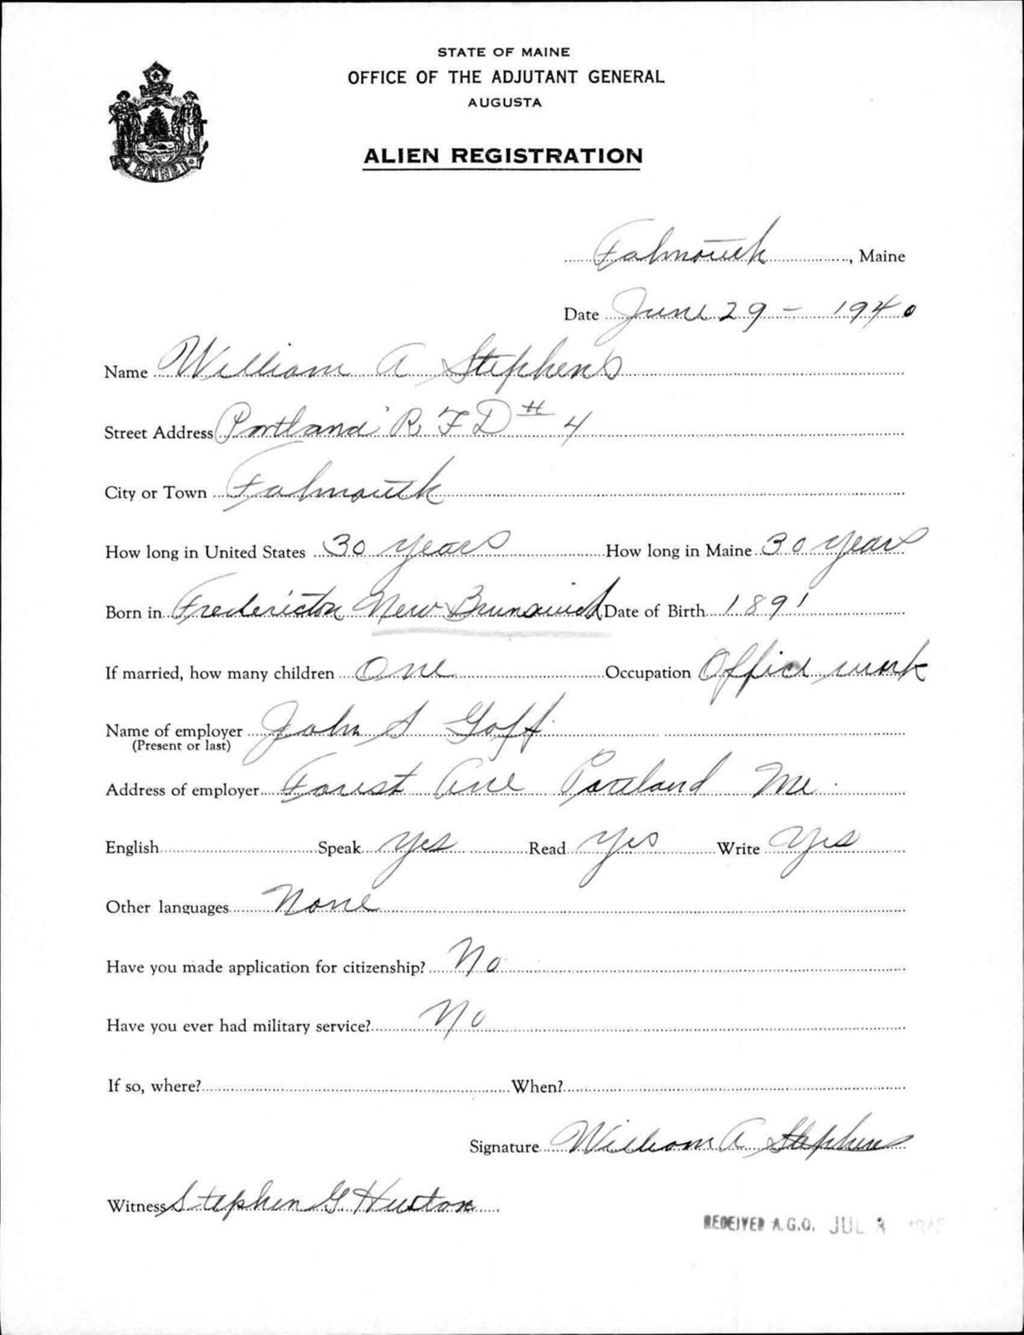 STATE OF MAINE
OFFICE OF THE ADJUTANT GENERAL
AUGUSTA
ALIEN REGISTRATION
MAINE
Falmouth, Maine
Date June 29 - 1940
Name William A Stephens
Street Address Portland R F D # 4
City or Town Falmouth
How long in United States 30 years How long in Maine 30 years
Born in Fredericton New Brunswick Date of Birth 1891
If married, how many children One Occupation Office work
Name of employer John S Goff
(Present or last)
Address of employer Forest Ave Portland Me.
English Speak yes Read yes Write yes
Other languages None
Have you made application for citizenship? No
Have you ever had military service? No
If so, where? When?
Signature William A Stephens
Witness Stephen G Huston
RECEIVED A.G.O. JUL